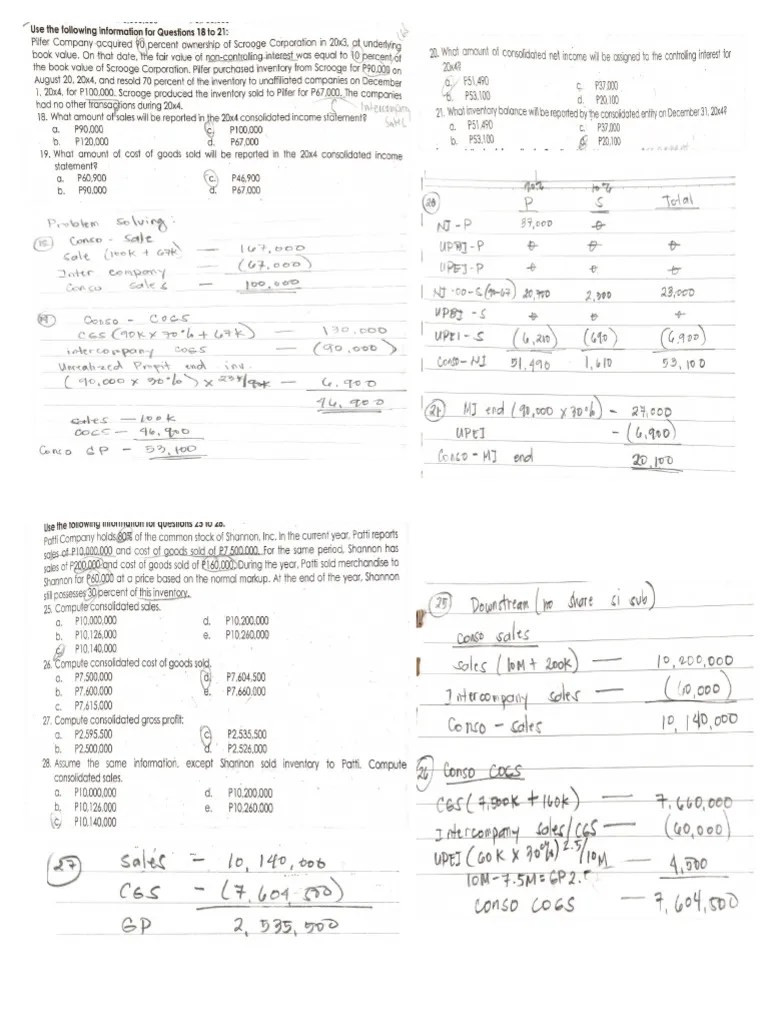 Use the following information for Questions 18 to 21:
Pilfer Company acquired 90 percent ownership of Scrooge Corporation in 20x3, at underlying
book value. On that date, the fair value of non-controlling interest was equal to 10 percent of
the book value of Scrooge Corporation. Pilfer purchased inventory from Scrooge for P90,000 on
August 20, 20x4, and resold 70 percent of the inventory to unaffiliated companies on December
1, 20x4, for P100,000. Scrooge produced the inventory sold to Pilfer for P67,000. The companies
had no other transactions during 20x4.
Intercompany
sale
18. What amount of sales will be reported in the 20x4 consolidated income statement?
a. P90,000 c. P100,000
b. P120,000 d. P67,000
19. What amount of cost of goods sold will be reported in the 20x4 consolidated income
statement?
a. P60,900 c. P46,900
b. P90,000 d. P67,000
Problem Solving:
18 Conso - Sale
Sale (100k + 67k) — 167,000
Inter company — (67,000)
Conso sales — 100,000
19 Conso - COGS
CGS (90k x 70% + 67k) — 130,000
intercompany COGS — (90,000)
Unrealized Profit end inv.
(90,000 x 30%) x 23k/90k — 6,900
46,900
sales — 100k
COGS — 46,900
Conso GP — 53,100
20. What amount of consolidated net income will be assigned to the controlling interest for
20x4?
a. P51,490 c. P37,000
b. P53,100 d. P20,100
21. What inventory balance will be reported by the consolidated entity on December 31, 20x4?
a. P51,490 c. P37,000
b. P53,100 d. P20,100
90% 10%
20 P S Total
NI-P 37,000
UPBI-P
UPEI-P
NI-00-S (90-67) 20,700 2,300 23,000
UPBI-S
UPEI-S (6,210) (690) (6,900)
Conso-NI 51,490 1,610 53,100
21 MI end (90,000 x 30%) - 27,000
UPEI - (6,900)
Conso - MI end 20,100
Use the following information for questions 25 to 28.
Patti Company holds 80% of the common stock of Shannon, Inc. In the current year, Patti reports
sales of P10,000,000 and cost of goods sold of P7,500,000. For the same period, Shannon has
sales of P200,000 and cost of goods sold of P160,000. During the year, Patti sold merchandise to
Shannon for P60,000 at a price based on the normal markup. At the end of the year, Shannon
still possesses 30 percent of this inventory.
25. Compute consolidated sales.
a. P10,000,000 d. P10,200,000
b. P10,126,000 e. P10,260,000
c. P10,140,000
26. Compute consolidated cost of goods sold.
a. P7,500,000 d. P7,604,500
b. P7,600,000 e. P7,660,000
c. P7,615,000
27. Compute consolidated gross profit:
a. P2,595,500 c. P2,535,500
b. P2,500,000 d. P2,526,000
28. Assume the same information, except Shannon sold inventory to Patti. Compute
consolidated sales.
a. P10,000,000 d. P10,200,000
b. P10,126,000 e. P10,260,000
c. P10,140,000
27 Sales - 10,140,000
CGS - (7,604,500)
GP 2,535,500
25 Downstream (no share si sub)
Conso sales
Sales (10M + 200k) — 10,200,000
Intercompany sales — (60,000)
Conso - sales 10,140,000
26 Conso COGS
CGS (7,500k + 160k) — 7,660,000
Intercompany sales/CGS — (60,000)
UPEI (60k x 30%) 2.5/10M — 4,500
10M - 7.5M = GP 2.5
CONSO COGS — 7,604,500